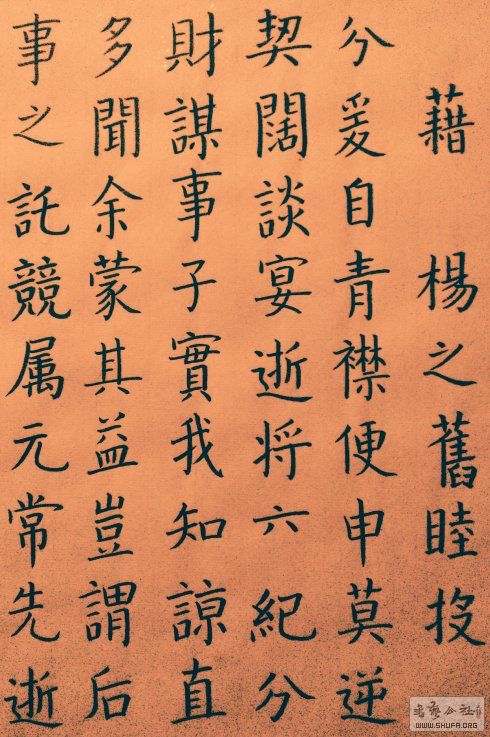 藉　楊之舊睦投
分爰自青襟便申莫逆
契闊談宴逝将六紀分
財謀事子實我知諒直
多聞余蒙其益豈謂后
事之託競属元常先逝
書藝公社
WWW.SHUFA.ORG